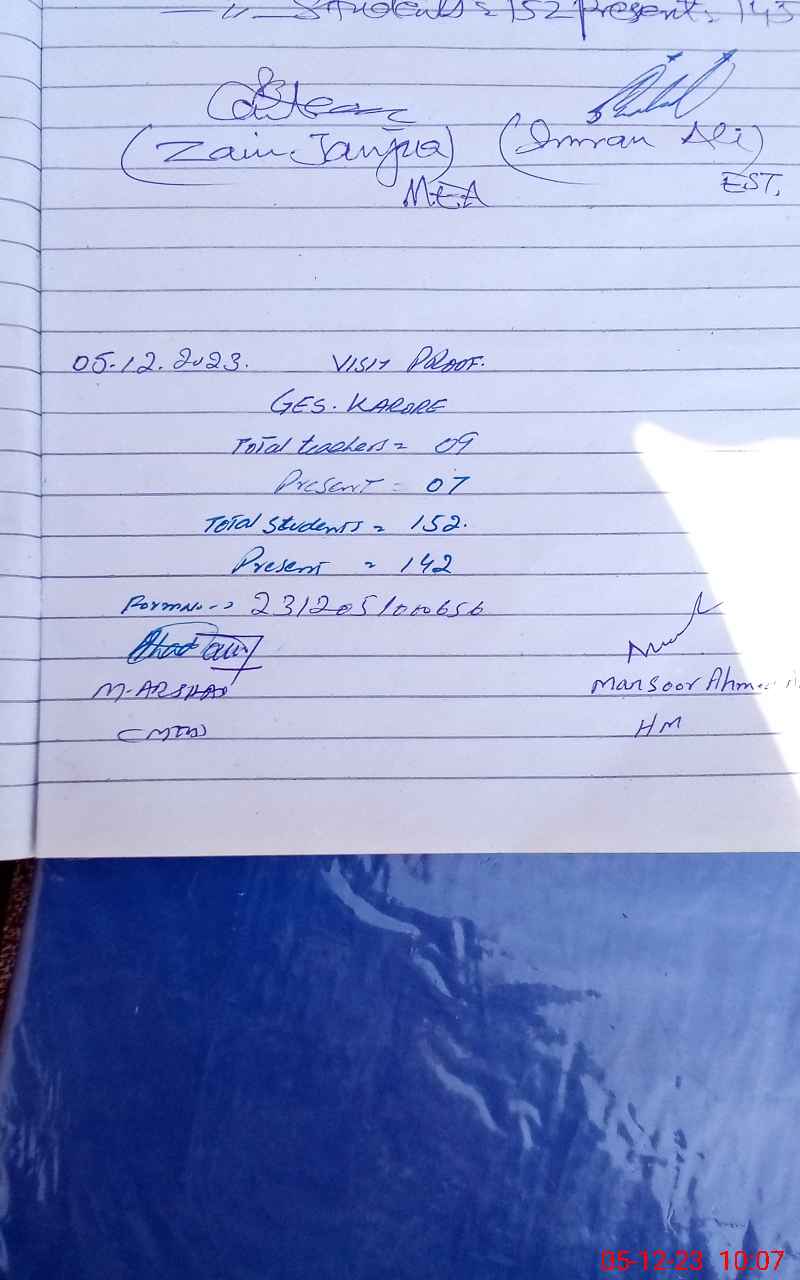 — 〃 — Students = 152 present. 143
(Zain Janjua) (Imran Ali)
MEA EST.
05.12.2023. VISIT PROOF.
GES. KARORE
Total teachers = 09
Present = 07
Total students = 152.
Present = 142
Form No -> 2312051000656
M. ARSHAD Mansoor Ahm
HM
05-12-23 10:07